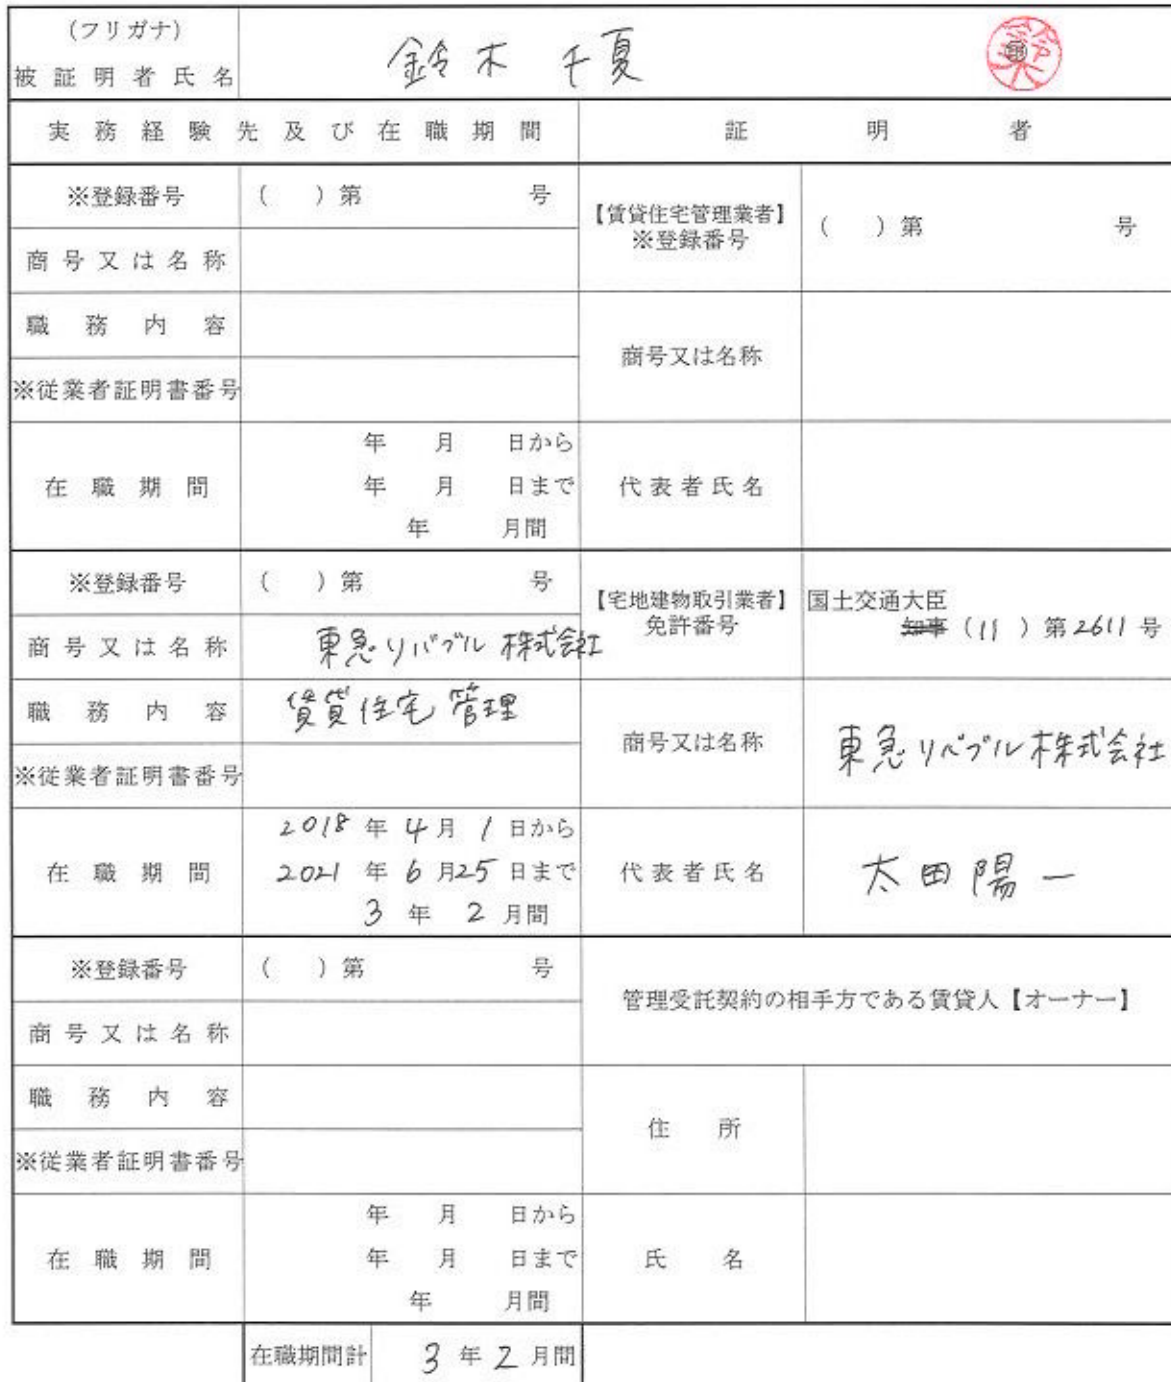 (フリガナ)
被証明者氏名
鈴木 千夏
鈴木
㊞
実務経験先及び在職期間
証明者
※登録番号
( )第 号
【賃貸住宅管理業者】
※登録番号
( )第 号
商号又は名称
職務内容
商号又は名称
※従業者証明書番号
在職期間
年 月 日から
年 月 日まで
年 月間
代表者氏名
※登録番号
( )第 号
【宅地建物取引業者】
免許番号
国土交通大臣
知事 (11)第2611号
商号又は名称
東急リバブル株式会社
職務内容
賃貸住宅管理
商号又は名称
東急リバブル株式会社
※従業者証明書番号
在職期間
2018年4月1日から
2021年6月25日まで
3年2月間
代表者氏名
太田陽一
※登録番号
( )第 号
管理受託契約の相手方である賃貸人【オーナー】
商号又は名称
職務内容
住所
※従業者証明書番号
在職期間
年 月 日から
年 月 日まで
年 月間
氏名
在職期間計
3年2月間